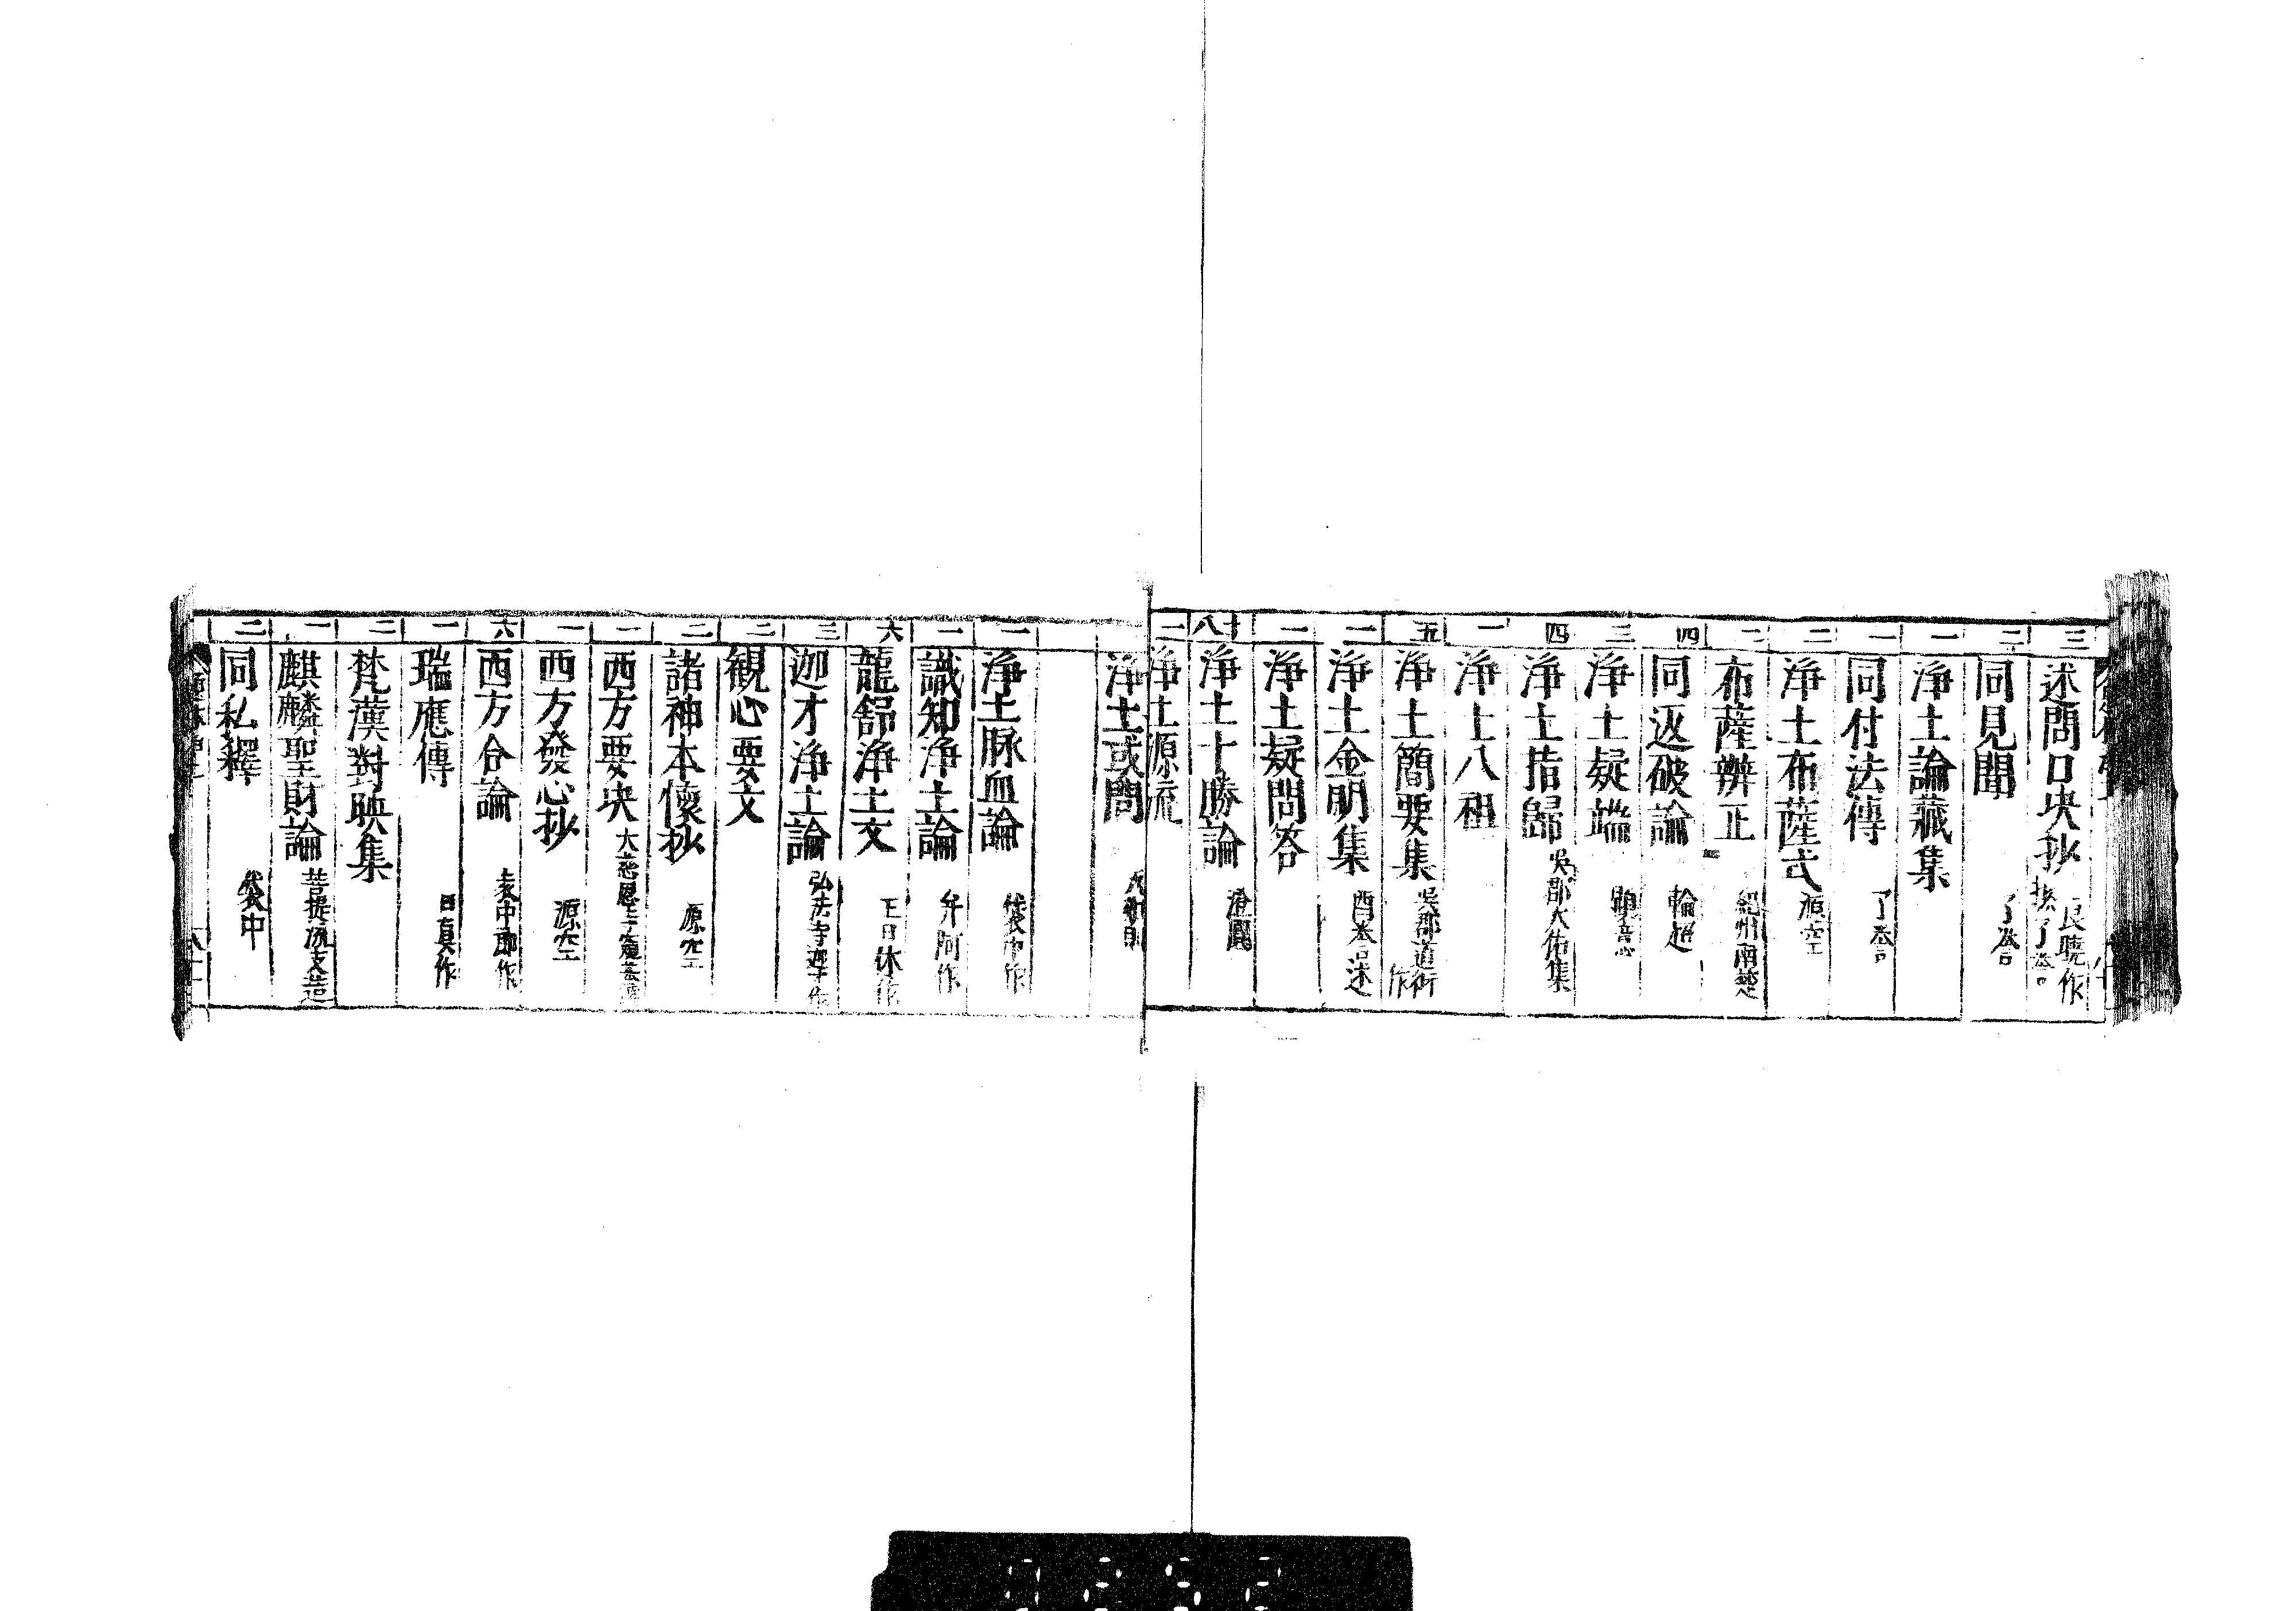 三 述問口决抄 良曉作
二 同見聞 了誉
一 淨土論藏集
一 同付法傳 了誉
二 淨土布薩式 源空
二 布薩辨正 紀州南楚
四 同返破論 輪超
三 淨土疑端 顕意
四 淨土指歸 吳郡大佑集
一 淨土八祖
五 淨土簡要集 吳郡道衍作
一 淨土金明集 酉誉述
二 淨土疑問答
十八 淨土十勝論 澄圓
二 淨土源流
淨土或問
一 淨土脉血論 袋中作
一 識知淨土論 弁阿作
六 龍舒淨土文 王日休作
三 迦才淨土論 弘法寺迦才作
二 観心要文
二 諸神本懷抄 源空
一 西方要决 大慈恩寺窺基
一 西方發心抄 源空
六 西方合論 袁中郎作
一 瑞應傳
二 梵漢對映集
一 麒麟聖財論 菩提流支造
二 同私釋 袋中